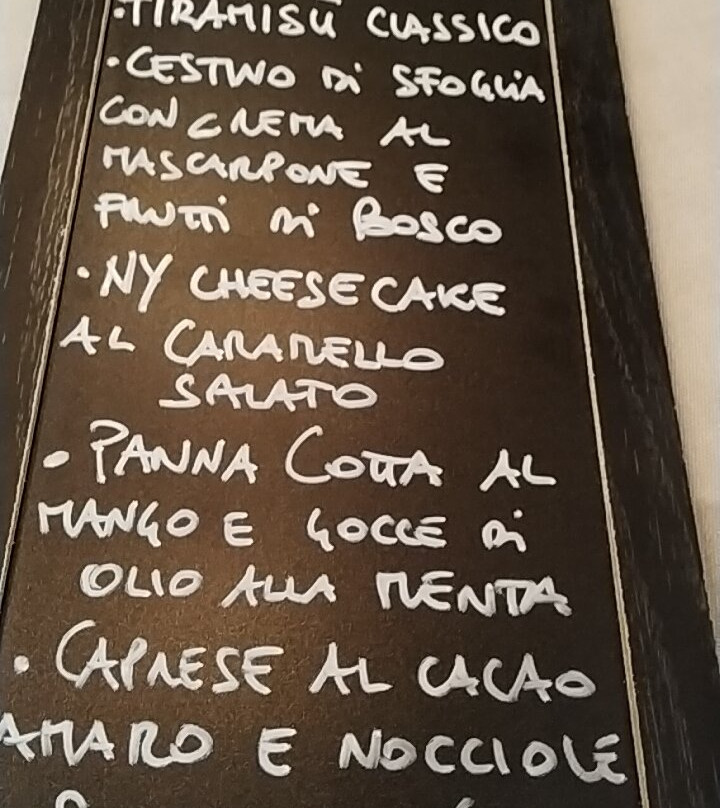 •TIRAMISÙ CLASSICO
•CESTINO DI SFOGLIA
CON CREMA AL
MASCARPONE E
FRUTTI DI BOSCO
•NY CHEESECAKE
AL CARAMELLO
SALATO
• PANNA COTTA AL
MANGO E GOCCE DI
OLIO ALLA MENTA
• CAPRESE AL CACAO
AMARO E NOCCIOLE